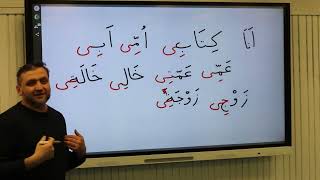 اَنَا كِتَابِي اُمِّي اَبِي
عَمِّي عَمَّتِي خَالِي خَالَتِي
زَوْجِي زَوْجَتِي